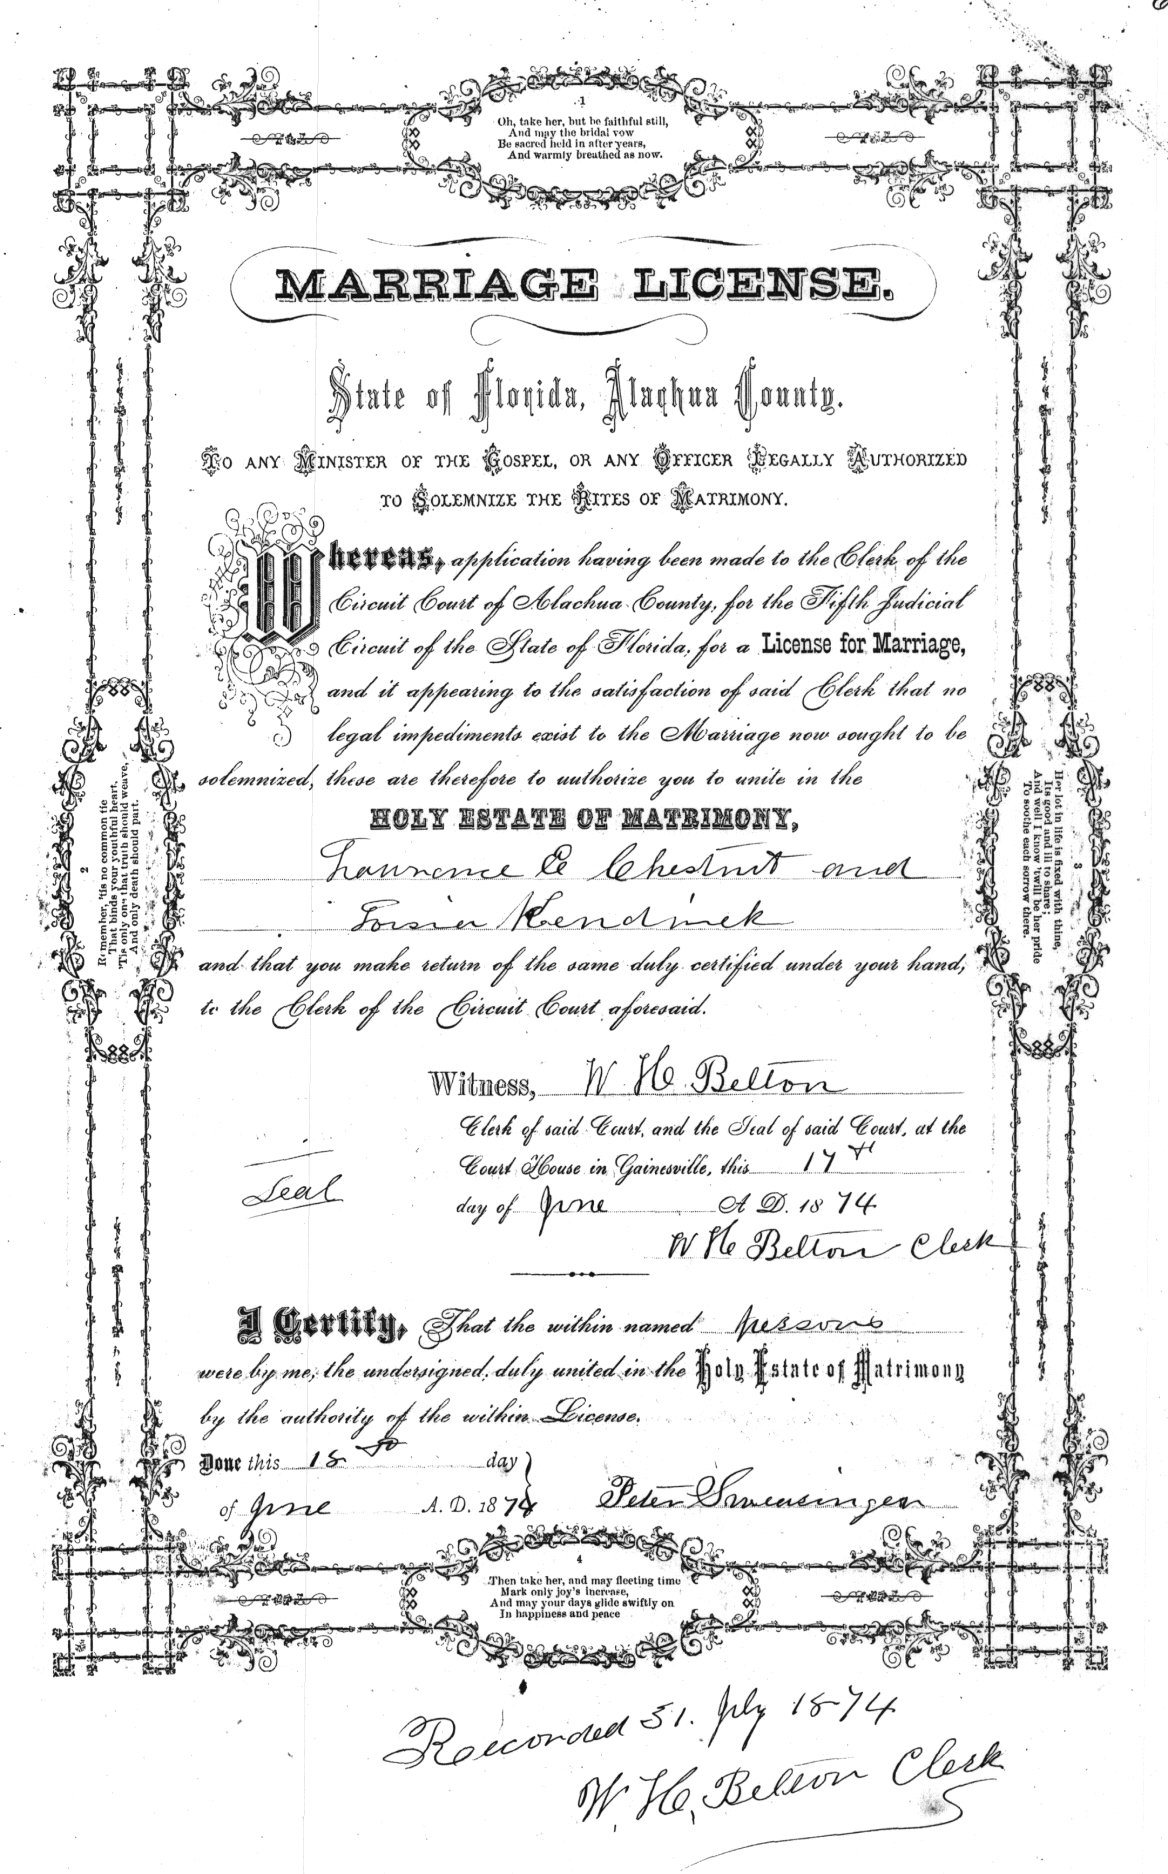 1
Oh, take her, but be faithful still,
And may the bridal vow
Be sacred held in after years,
And warmly breathed as now.
MARRIAGE LICENSE.
State of Florida, Alachua County.
TO ANY MINISTER OF THE GOSPEL, OR ANY OFFICER LEGALLY AUTHORIZED
TO SOLEMNIZE THE RITES OF MATRIMONY.
Whereas, application having been made to the Clerk of the
Circuit Court of Alachua County, for the Fifth Judicial
Circuit of the State of Florida, for a License for Marriage,
and it appearing to the satisfaction of said Clerk that no
legal impediments exist to the Marriage now sought to be
solemnized, these are therefore to authorize you to unite in the
HOLY ESTATE OF MATRIMONY,
Lawrence E Chestnut and
Kendrick
and that you make return of the same duly certified under your hand,
to the Clerk of the Circuit Court aforesaid.
2
Remember, 'tis no common tie
That binds your youthful heart,
'Tis only one that truth should weave,
And only death should part.
3
Her lot in life is fixed with thine,
Its good and ill to share
And well I know 'twill be her pride
To soothe each sorrow there.
Witness, W. H. Belton
Clerk of said Court, and the Seal of said Court, at the
Court House in Gainesville, this 17th
Seal
day of June A D. 1874
W H Belton Clerk
I Certify, That the within named persons
were by me, the undersigned, duly united in the Holy Estate of Matrimony
by the authority of the within License.
Done this 18 day
of June A. D. 1874
Peter Swearingen
4
Then take her, and may fleeting time
Mark only joy's increase,
And may your days glide swiftly on
In happiness and peace
Recorded 31. July 1874
W. H. Belton Clerk